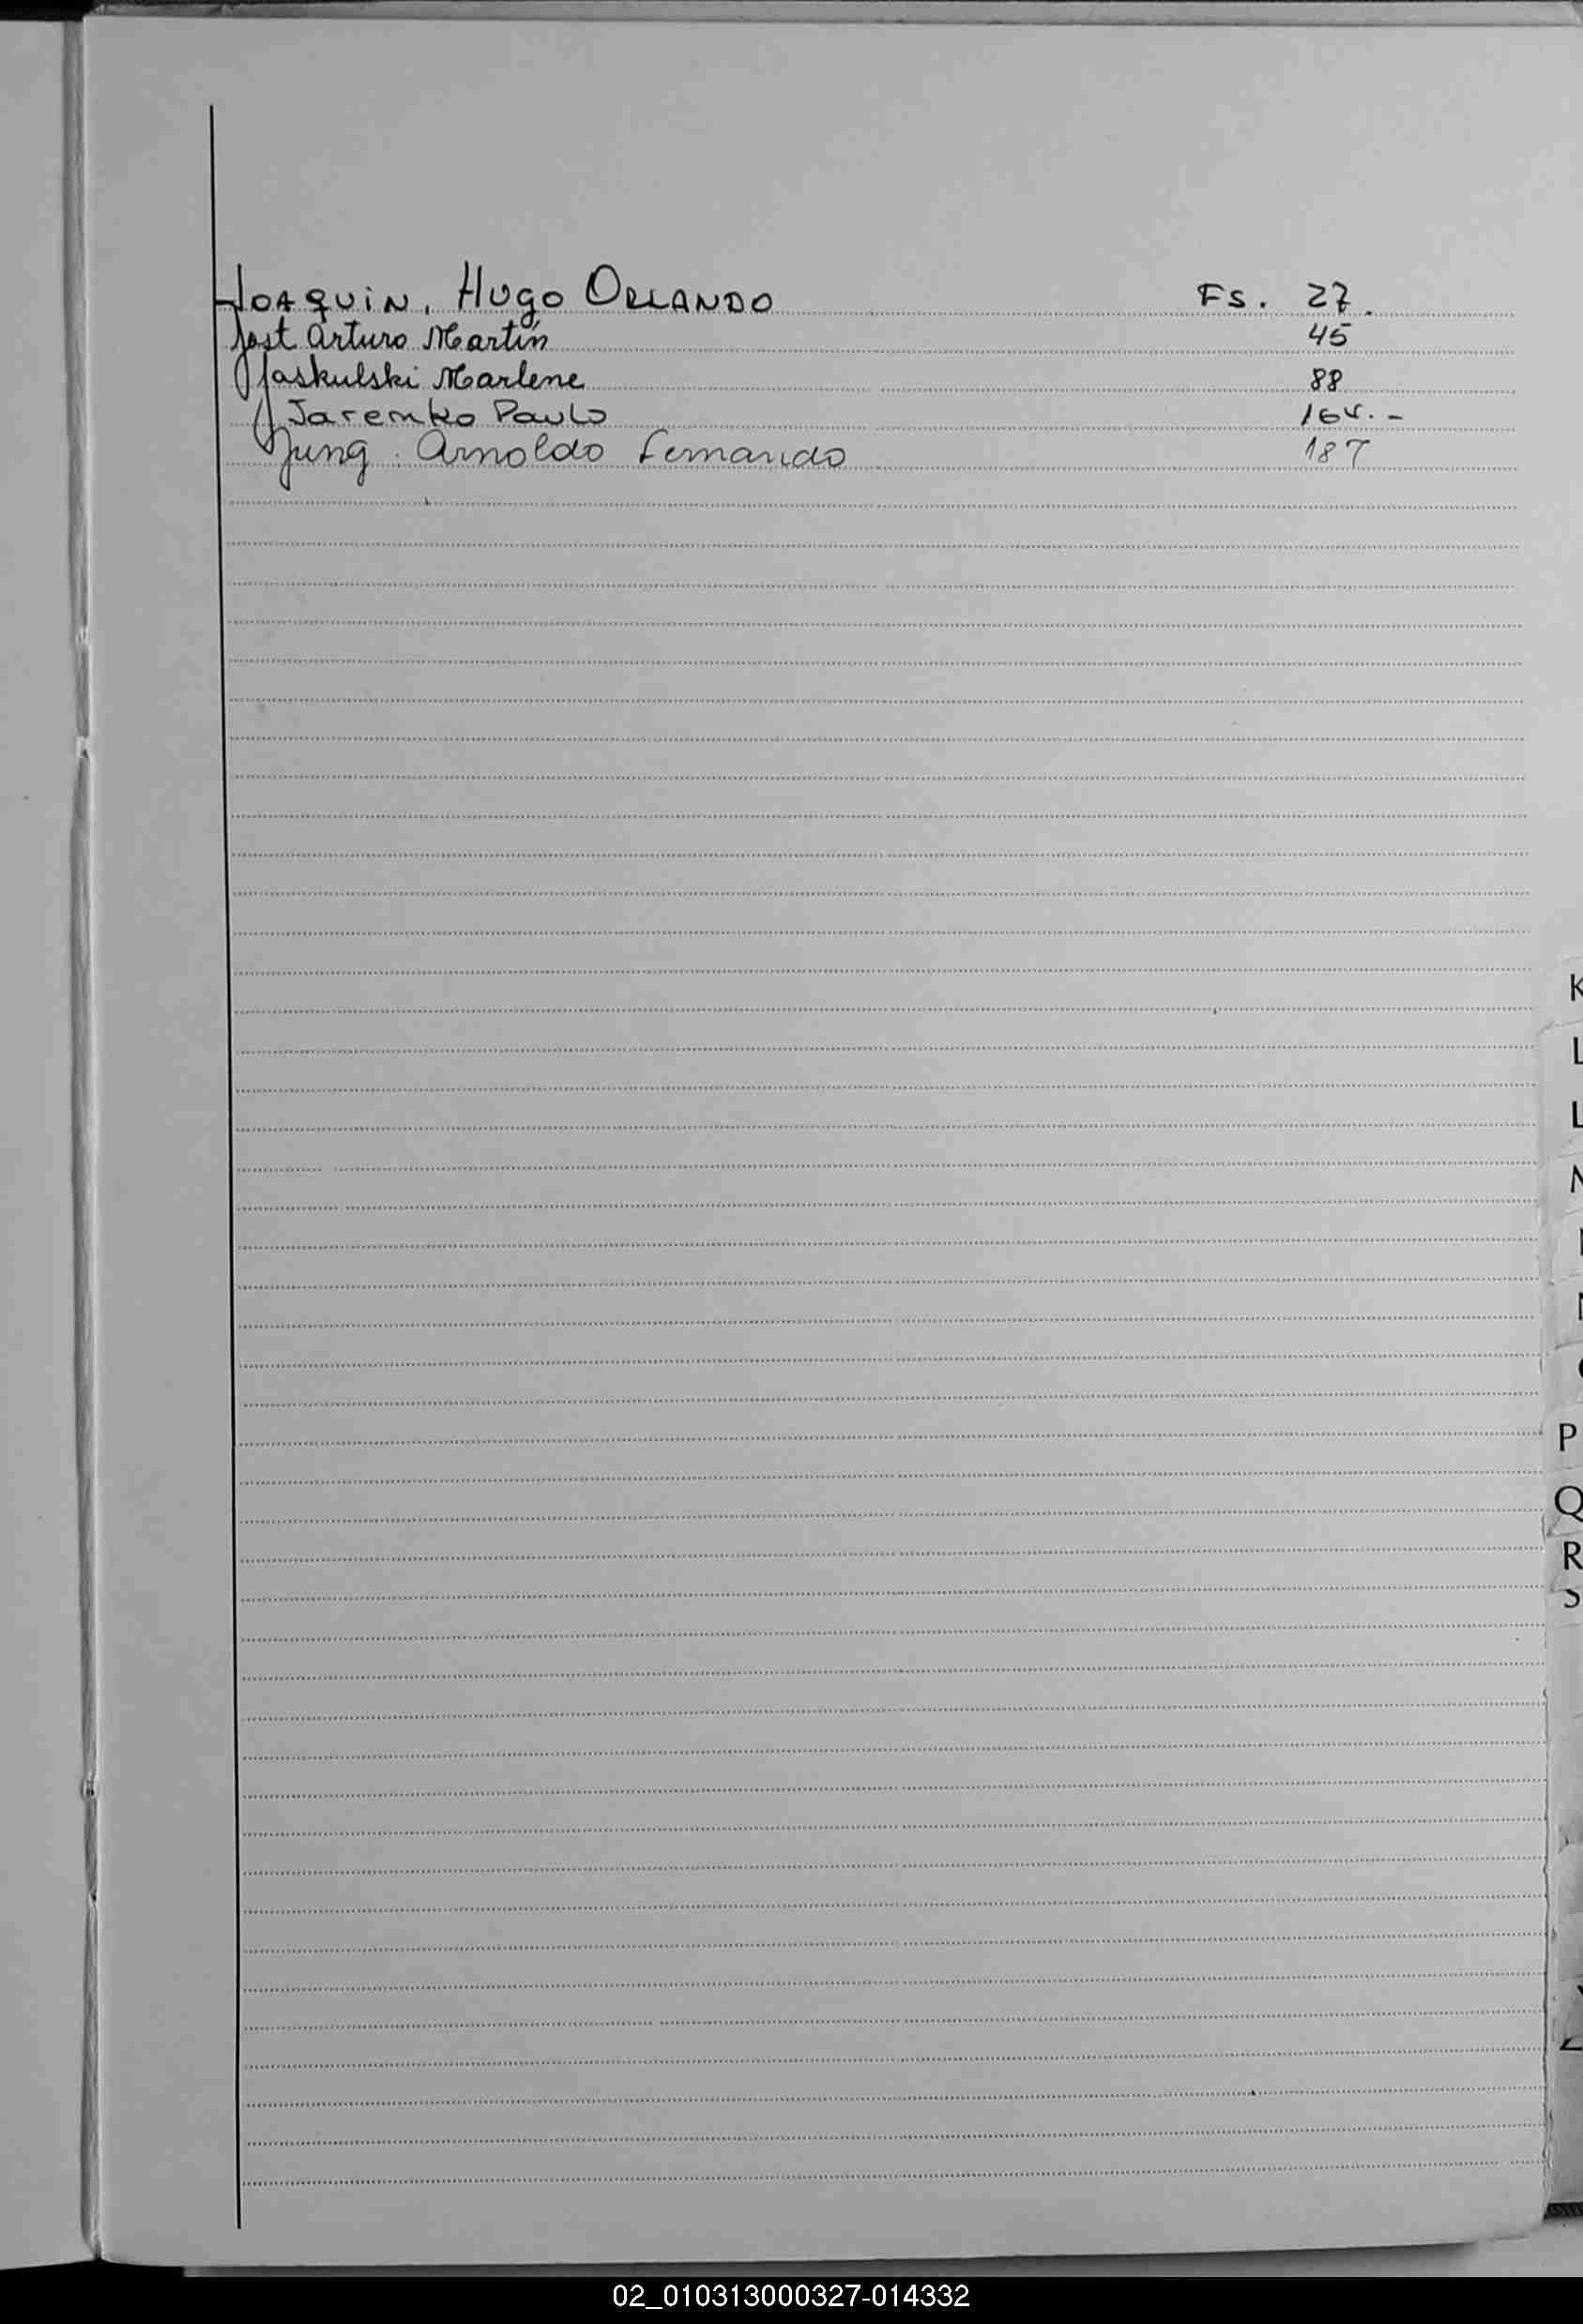 JOAQUIN, HUGO ORLANDO Fs. 27.
Jost Arturo Martín 45
Jaskulski Marlene 88
Jaremko Paulo
Jung. Arnoldo Fernando 187
K
L
L
P
Q
R
S
02_010313000327-014332